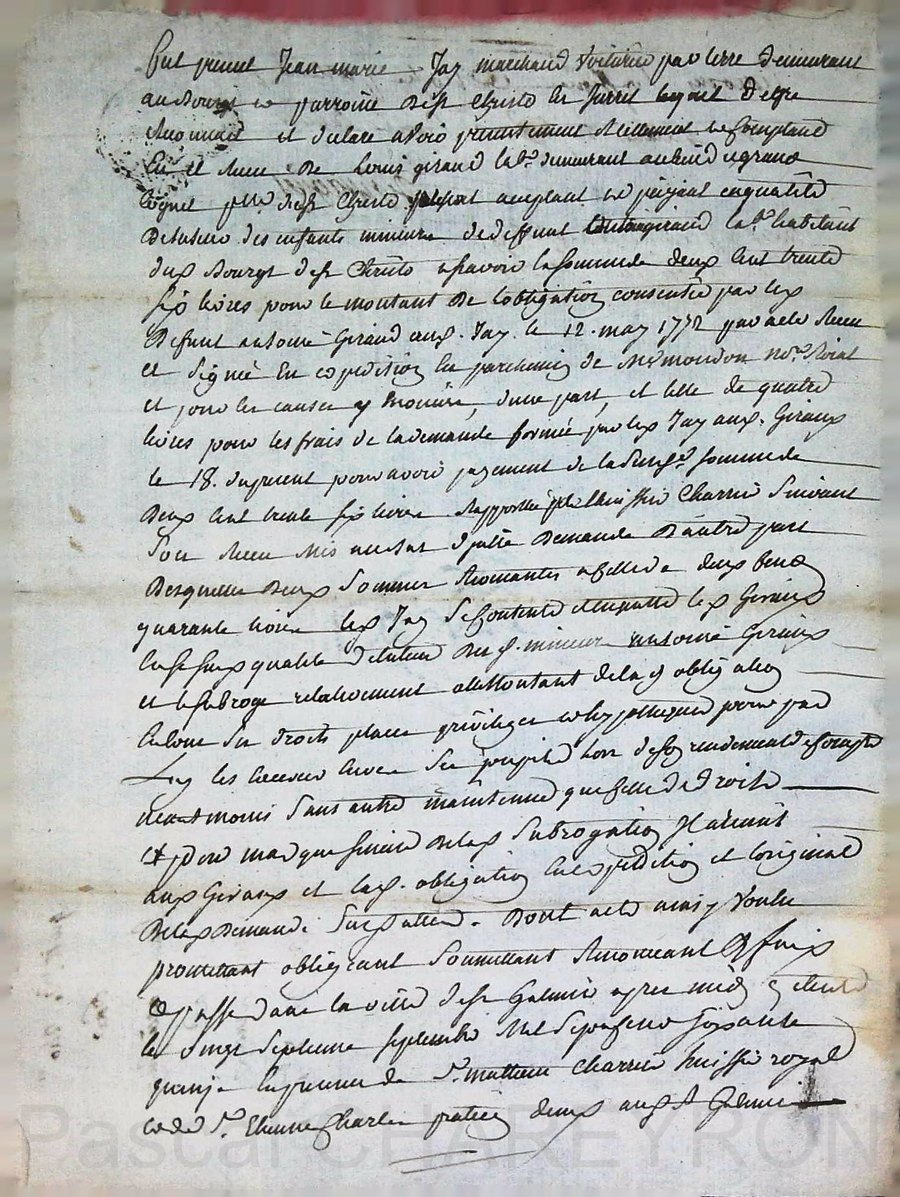 fut present Jean marie Jay marchand voiturier par terre demeurant
au Bourg et parroisse de St Christo en Jarrest lequel de gre
reconnait et declare avoir presentement reellement et comptant
eu et receu de Louis giraud lab.r demeurant au lieu de
parr.e de St Christo present acceptant et payant en qualité
de tuteur des enfants mineurs de deffunt antoine giraud lab.r habitant
dud Bourg de St Christo a savoir la somme de deux cent trente
six livres pour le montant de l'obligation consentie par led
Defunt antoine Giraud aud. Jay. le 12. may 1772 par acte receu
et signé En expedition en parchemin de Me mondon no.re Roial
et pour les causes y enoncées, d'une part, et celle de quatre
livres pour les frais de la demande formée par led Jay aud. Giraud
le 18. du present pour avoir payement de la susd.e somme de
Deux cent trente six livres rapportée par l'huissier Charrin suivant
de lad Demande D'autre part
Desquelles Deux sommes revenantes a celle de deux cent
quarante livres led Jay se contente et en quitte led Giraud
en sad qualité de tuteur des d. mineurs antoine Giraud
et le subroge relativement au montant de lad obligation
en tous ses droits place privileges et hypotheques pour par
Luy les
neantmoins sans autre maintenue que celle de Droit
Et pour marque sincere De lad Subrogation Il a remis
aud Giraud et lad. obligation en expedition et l'original
De lad Demande susdattée. Dont acte ainsy voulu
promettant obligeant soumettant renonceant &
fait et passé dans la ville de St Galmier apres midy
le vingt septieme septembre Mil sept cent soixante
quinze en presence de Sr. matthieu Charrin huissier royal
et de Sr. Etienne Charles praticien demeur. aud St Galmier
Pascal CHAREYRON